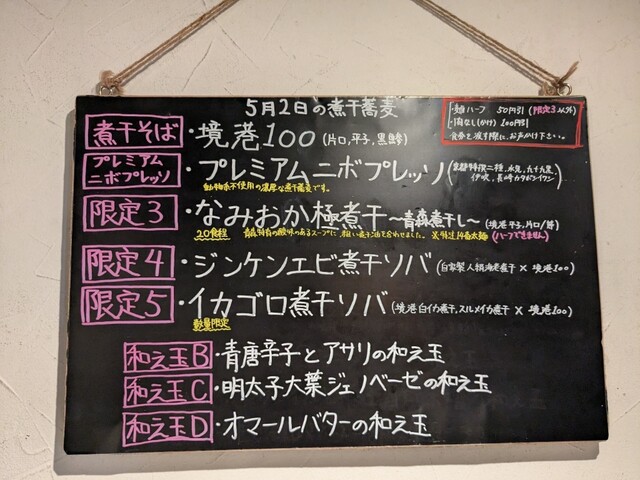 5月2日の煮干蕎麦
・麺ハーフ 50円引 (限定3以外)
・肉なし(かけ) 100円引
・食券を渡す際に、お声かけ下さい。
煮干そば ・境港100 (片口,平子,黒鯵)
プレミアムニボプレッソ ・プレミアムニボプレッソ (九十九里,
伊吹,長崎カタボシイワシ)
動物系不使用の濃厚な煮干蕎麦です。
限定3 ・なみおか極煮干〜青森煮干し〜 (境港平子,片口/鯵)
20食程 青森特有の酸味のあるスープに、煮干油を合わせました。 (ハーフできません)
限定4 ・ジンケンエビ煮干ソバ (自家製人頭海老煮干 × 境港100)
限定5 ・イカゴロ煮干ソバ (境港白イカ煮干,スルメイカ煮干 × 境港100)
数量限定
和え玉B ・青唐辛子とアサリの和え玉
和え玉C ・明太子大葉ジェノベーゼの和え玉
和え玉D ・オマールバターの和え玉